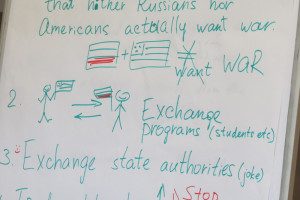 that neither Russians nor
Americans actually want war.
+
want WAR
2.
Exchange
programs (students etc)
3. Exchange state authorities (joke)
Stop